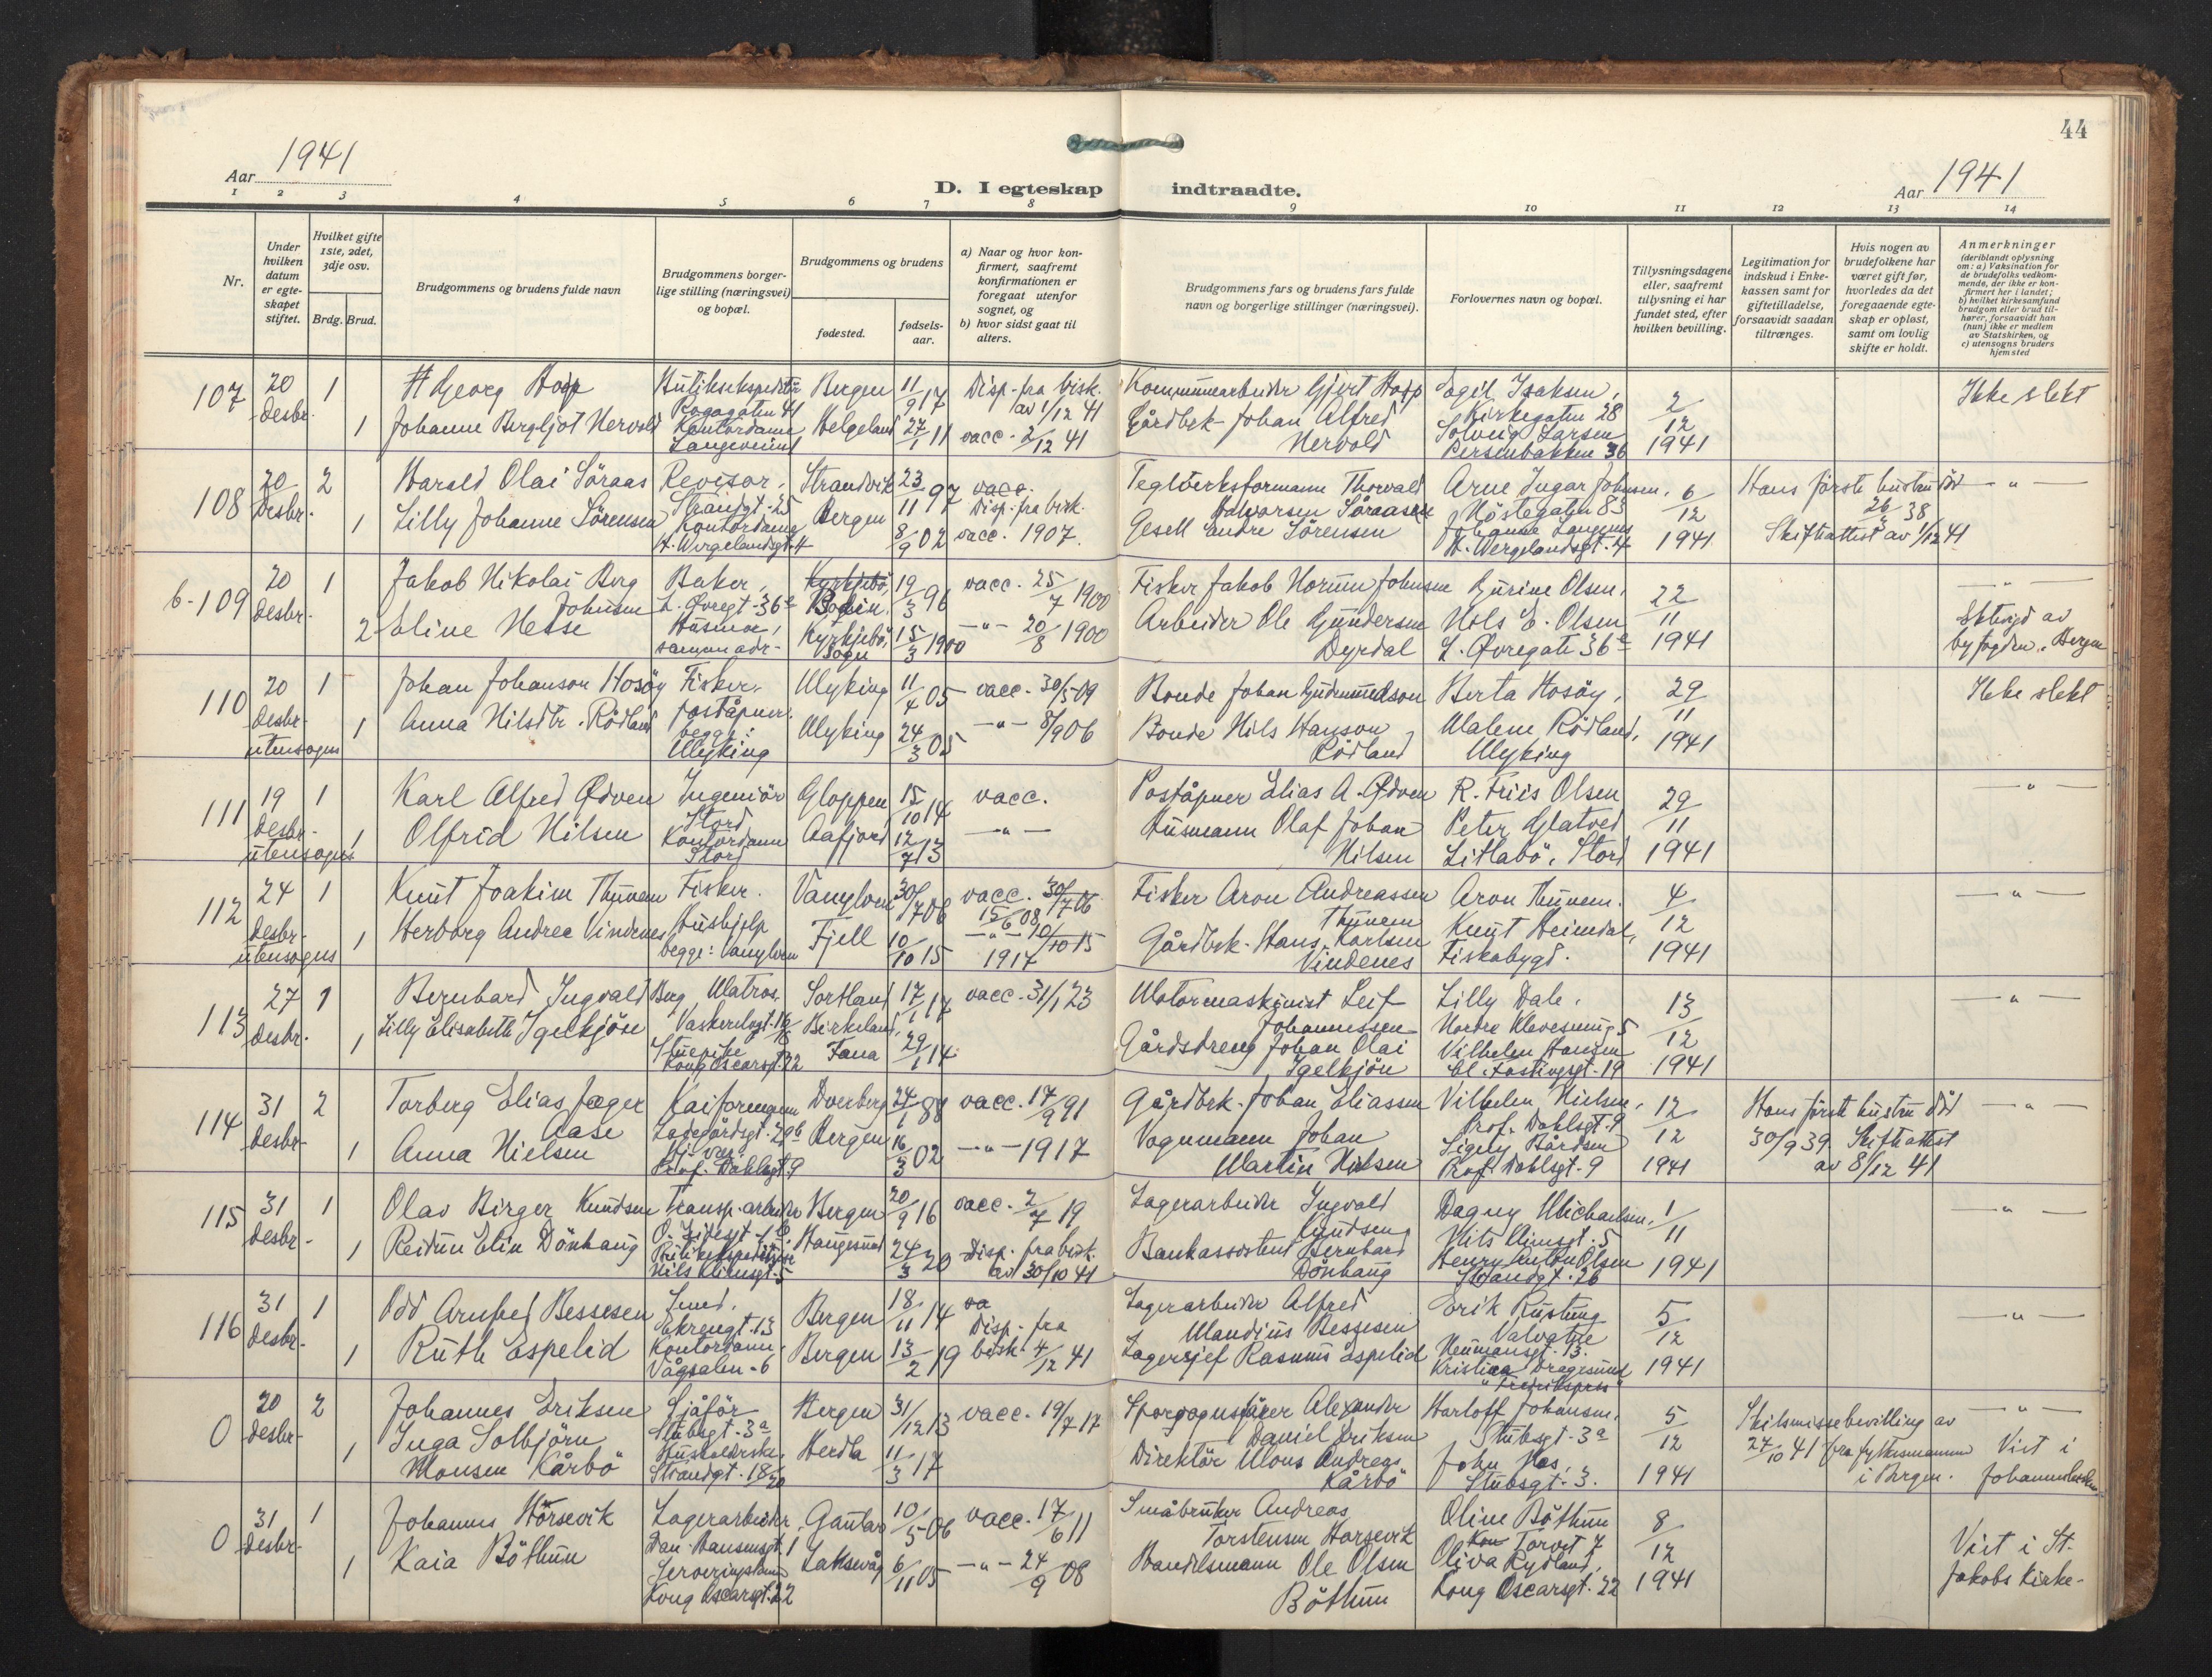 44
Aar 1941
D. I egteskap indtraadte.
Aar 1941
1 2 3 4 5 6 7 8 9 10 11 12 13 14
Nr.
Under hvilken datum er egteskapet stiftet.
Hvilket gifte 1ste, 2det, 3dje osv.
Brdg. Brud.
Brudgommens og brudens fulde navn
Brudgommens borgerlige stilling (næringsvei) og bopæl.
Brudgommens og brudens
fødested.
fødselsaar.
a) Naar og hvor konfirmert, saafremt konfirmationen er foregaat utenfor sognet, og
b) hvor sidst gaat til alters.
Brudgommens fars og brudens fars fulde navn og borgerlige stillinger (næringsvei).
Forlovernes navn og bopæl.
Tillysningsdagene eller, saafremt tillysning ei har fundet sted, efter hvilken bevilling.
Legitimation for indskud i Enkekassen samt for giftetilladelse, forsaavidt saadan tiltrænges.
Hvis nogen av brudefolkene har været gift før, hvorledes da det foregaaende egteskap er opløst, samt om lovlig skifte er holdt.
Anmerkninger
(deriblandt oplysning om: a) Vaksination for de brudefolks vedkommende, der ikke er konfirmert her i landet; b) hvilket kirkesamfund brudgom eller brud tilhører, forsaavidt han (hun) ikke er medlem av Statskirken, og c) utensogns bruders hjemsted
107 20 desbr. 1 Georg Hopp Butikekspeditør Bergen 11/9 17 Disp. fra bisk. av 1/12 41 Kommunearbeider Gjert Hopp Isaksen, Kirkegaten 28 2/12 1941 Ikke slekt
1 Johanne Bergljot Nervold Kontordame Helgeland 27/1 11 vacc. 2/12 41 Gårdbrk. Johan Alfred Nervold Solveig Larsen Persenbakken 36
108 20 desbr. 2 Harald Olai Söraas Revisor. Strandgt. 25 Strandvik 23/11 97 vacc. Disp. fra bisk. Teglverksformann Thorvald Halvorsen Söraasen Arne Ingar Johnsen, Nöstegaten 83 6/12 1941 Hans förste hustru död 26/2 38 — " —
1 Lilly Johanne Sörensen Kontordame H. Wergelandsgt. 4 Bergen 8/9 02 vacc. 1907. Gesell Andre Sörensen H. Wergelandsgt. 4 Skifteattest av 1/12 41
6-109 20 desbr. 1 Jakob Nikolai Berg Johnsen Baker, L. Øvregt. 36a Bodin. 19/3 96 vacc. 25/7 1900 Fisker Jakob Norum Johnsen Gurine Olsen, 22/11 1941 — " —
2 Eline Hesse Husmor, samme adr. Kyrkjebö, Sogn 15/3 1900 — " — 20/8 1900 Arbeider Ole Gundersen Dyrdal Nils E. Olsen L. Øvregate 36a Ektevigd av byfogden, Bergen
110 20 desbr. utensogns 1 Johan Johanson Hosöy Fisker. Myking 11/4 05 vacc. 30/5 09 Bonde Johan Gudmundson Berta Hosöy, 29/11 1941 Ikke slekt
1 Anna Nilsdtr. Rödland poståpner. begge: Myking Myking 24/3 05 — " — 8/9 06 Bonde Nils Hanson Rödland Malene Rödland, Myking
111 19 desbr. utensogns 1 Karl Alfred Ødven Ingeniör Stord Gloppen 15/10 14 vacc. Poståpner Elias A. Ødven R. Friis Olsen 29/11 1941 — " —
1 Olfrid Nilsen Kontordame Stord Aafjord 12/7 13 — " — Husmann Olaf Johan Nilsen Peter Glatved Litlabö, Stord
112 24 desbr. utensogns 1 Knut Joakim Thunem Fisker. Vanylven 30/7 06 vacc. 15/6 08 Fisker Aron Andreassen Thunem Aron Thunem. 4/12 1941 — " —
1 Herborg Andrea Vindenes Hushjelp begge: Vanylven Fjell 10/10 15 — " — 1917 Gårdbrk. Hans Karlsen Vindenes Knut Heimdal, Fiskabygd.
113 27 desbr. 1 Bernhard Ingvald Berg Matros. Sortland 17/1 17 vacc. 31/1 23 Motormaskinist Leif Johannessen Lilly Dale, Nordre Kleivesmug 5 13/12 1941 — " —
1 Lilly Elisabeth Igelkjöse Stuepike Kong Oscarsgt. 22 Birkeland, Fana 29/1 14 Gårdsdreng Johan Olai Igelkjön Vilhelm Hansen
114 31 desbr. 2 Torberg Elias Jæger Aase Kaiformann Ladegårdsgt. 29b Dverberg 24/1 88 vacc. 17/9 91 Gårdbrk. Johan Eliassen Vilhelm Nielsen, Prof. Dahlsgt. 9 12/12 1941 Hans förste hustru död 30/9 39. Skifteattest av 8/12 41 — " —
1 Anna Nielsen Prof. Dahlsgt. 9 Bergen 16/3 02 — " — 1917 Vognmann Johan Martin Nielsen Prof. Dahlsgt. 9
115 31 desbr. 1 Olav Birger Knudsen Transp. arbeider Bergen 20/9 16 vacc. 2/7 19 Lagerarbeider Ingvald Knudsen Dagny Michaelsen, Nils Klimsgt. 5 1/11 1941 — " —
1 Reidun Elin Dönhaug Butikekspeditrise Nils Klimsgt. 5 Haugesund 24/3 20 Disp. fra bisk. av 30/10 41 Bankassistent Bernhard Dönhaug Henry Anton Olsen Strandgt. 26
116 31 desbr. 1 Odd Arnfred Bessesen Smed. Ekrengt. 13 Bergen 18/11 14 Disp. fra bisk. 4/12 41 Lagerarbeider Alfred Mandius Bessesen Erik Rustung Valvatne Neumannsgt. 13. 5/12 1941 — " —
1 Ruth Espelid Kontordame, Vågsalm. 6 Bergen 13/2 19 Lagersjef Rasmus Espelid Kristian Dragesund
0 20 desbr. 2 Johannes Eriksen Sjåför Stubsgt. 3a Bergen 31/12 13 vacc. 19/7 17 Sporvognsfører Alexander Daniel Eriksen Harloff Johansen, Stubsgt. 3a 5/12 1941 Skilsmissebevilling av 27/10 41 fra fylkesmannen i Bergen. — " —
1 Inga Solbjörn Monsen Kårbö Strandgt. 18/20 Herdla 11/3 17 Direktör Mons Andreas Kårbö John Nes, Stubsgt. 3. Viet i Johanneskirken
0 31 desbr. 1 Johannes Horsevik Lagerarbeider, Gaular 10/5 06 vacc. 17/6 11 Småbruker Andreas Torstensen Horsevik Oline Böthun Torvet 7 8/12 1941 Viet i St. Jakobs Kirke.
1 Kaia Böthun Kong Oscarsgt. 22 Laksevåg 6/11 05 — " — 24/9 08 Handelsmann Ole Olsen Böthun Oliva Rydland, Kong Oscarsgt. 22